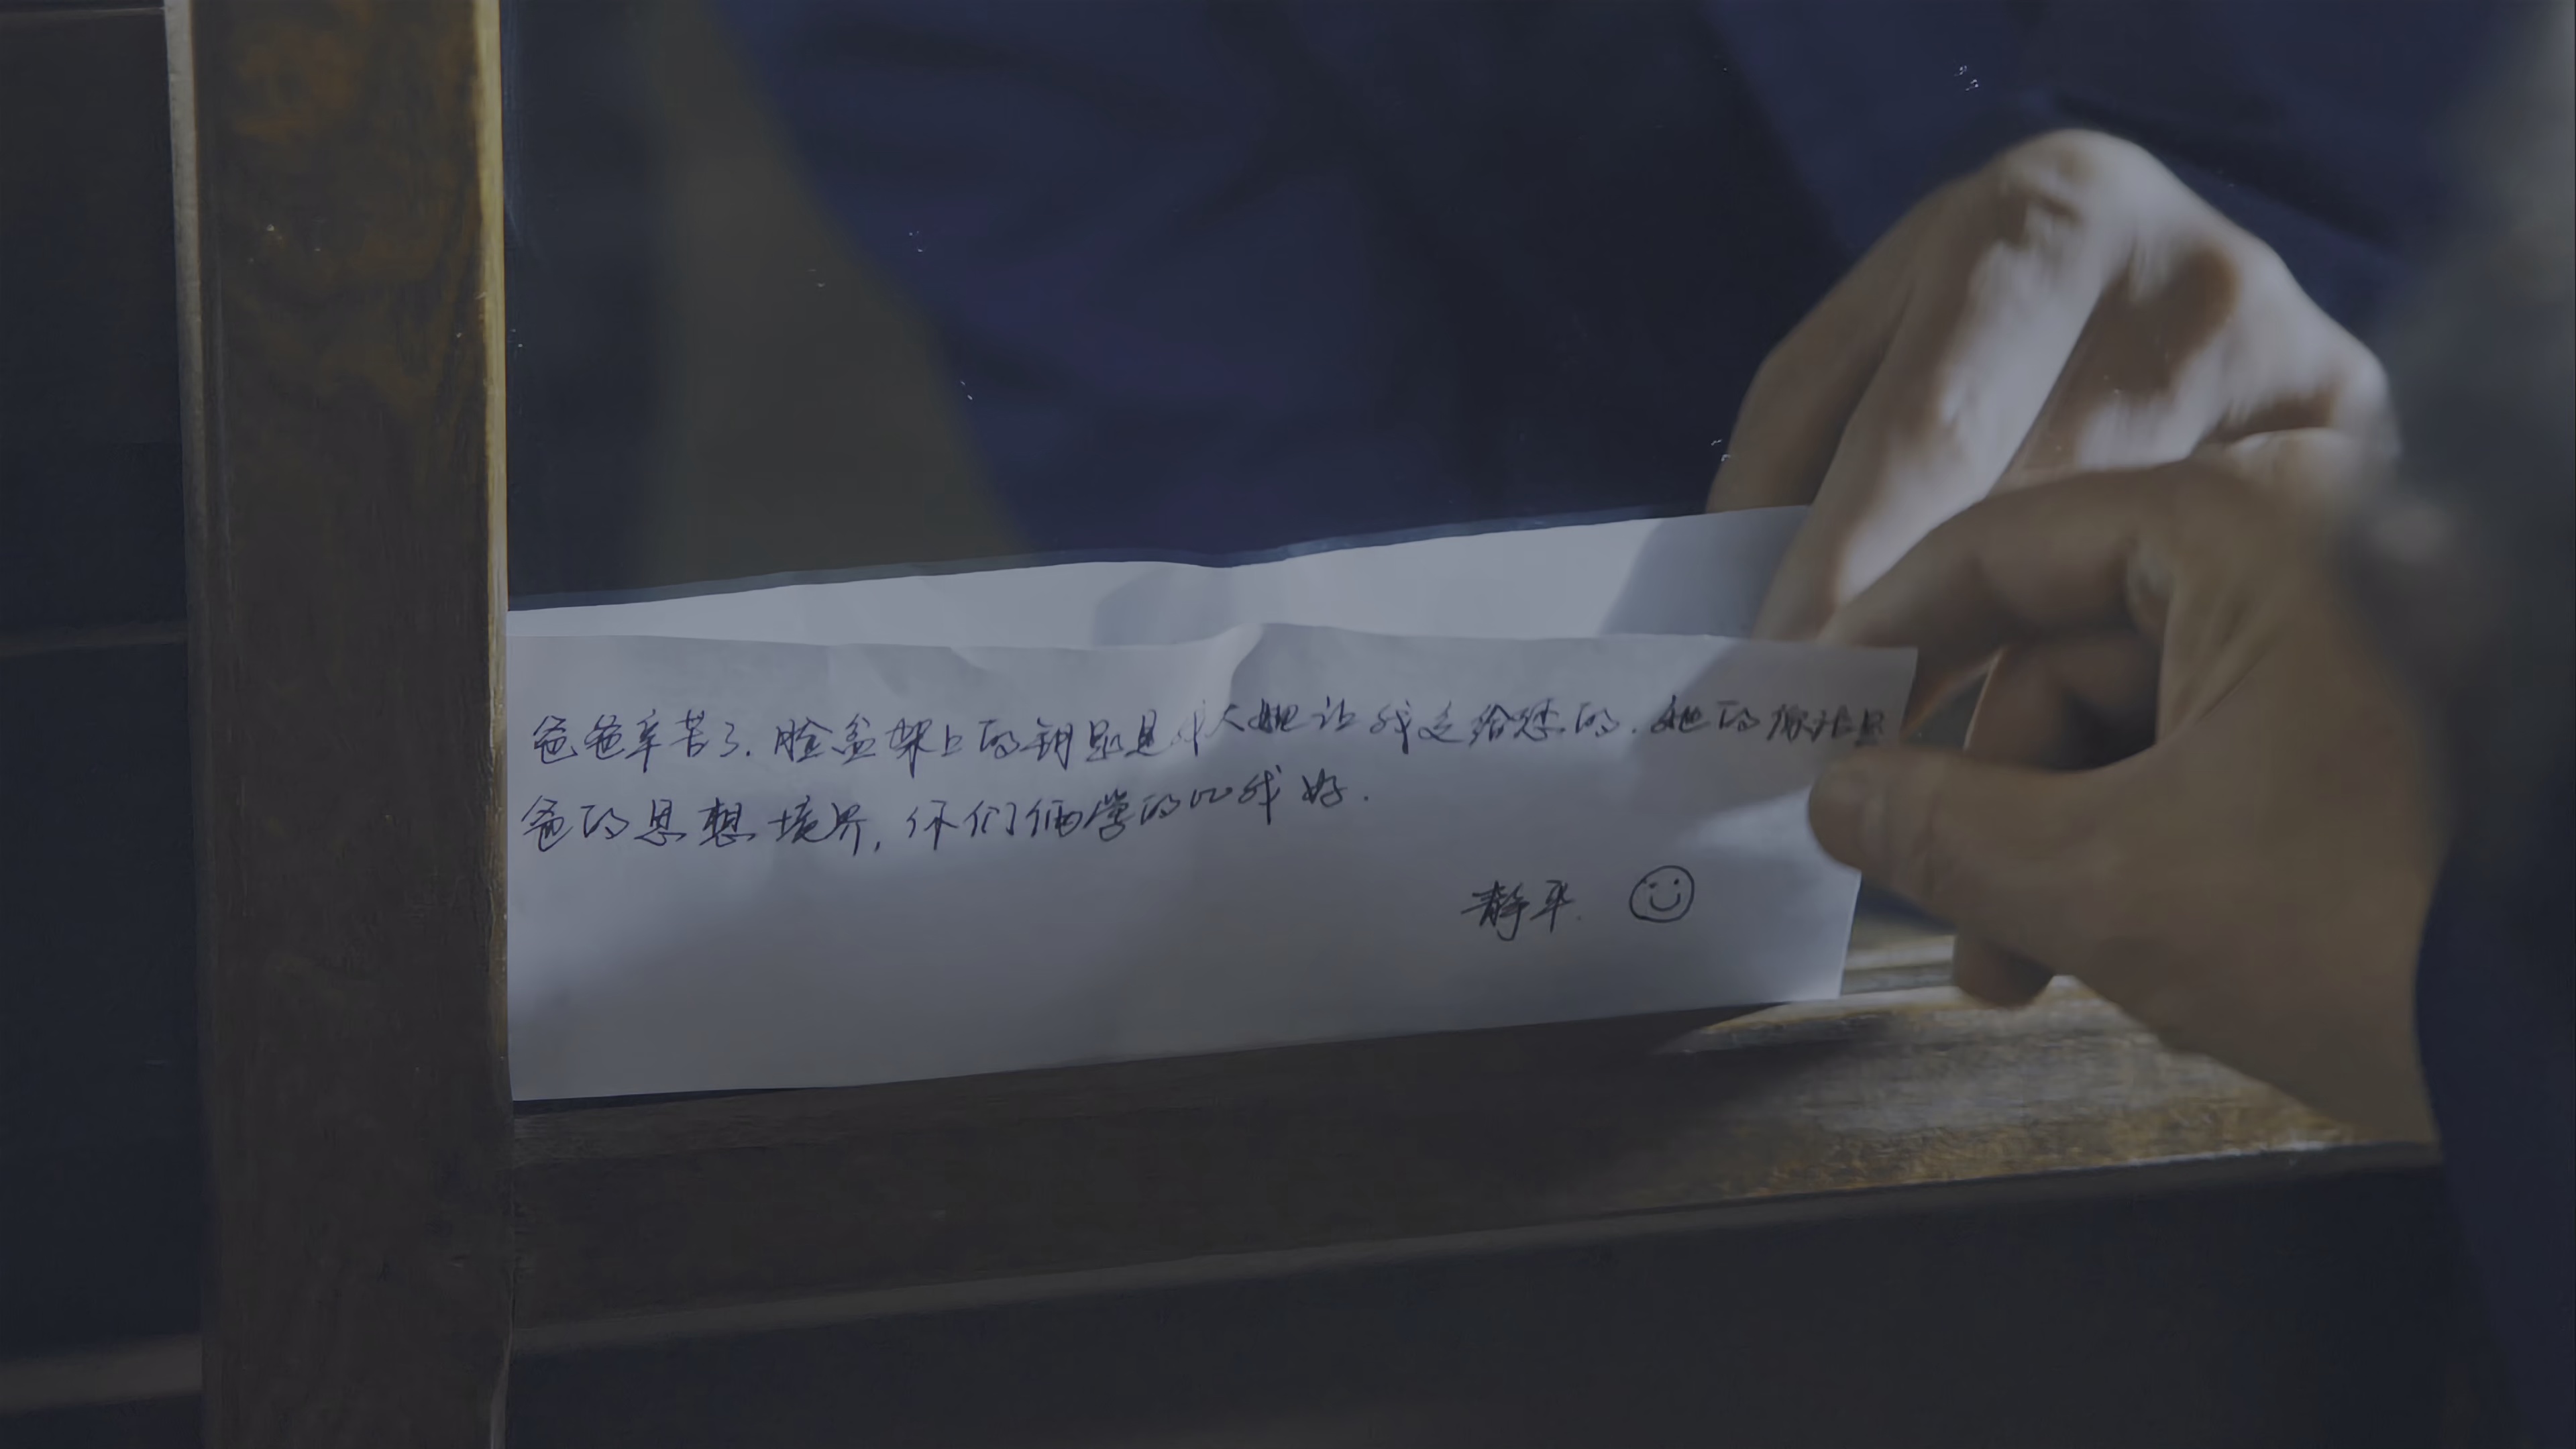 爸爸辛苦了.脸盆架上的钥匙是大姐让我交给您的.她的
爸的思想境界,你们俩学的比我好.
静平 ☺